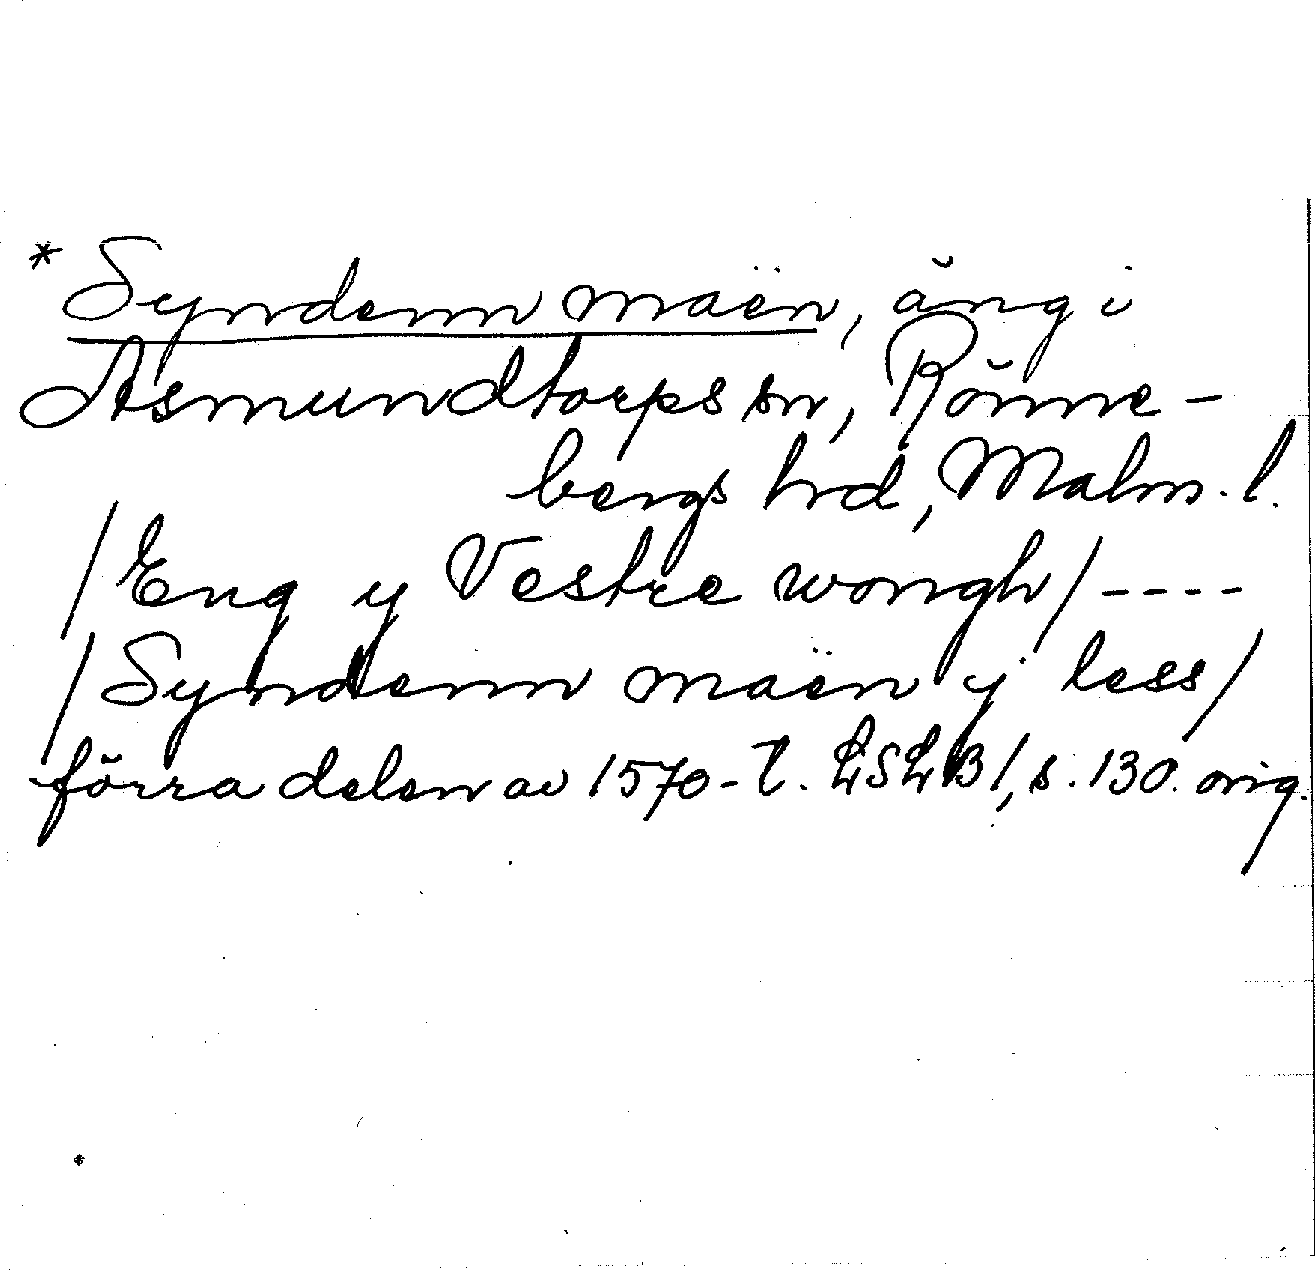 * Syndenn maën, äng i
Asmundtorps sn, Rönne-
bergs hrd, Malm. l.
/Eng y Vestre wongh/ ----
/Syndenn maën y less/
förra delen av 1570-t. LSLB 1, s. 130. orig.